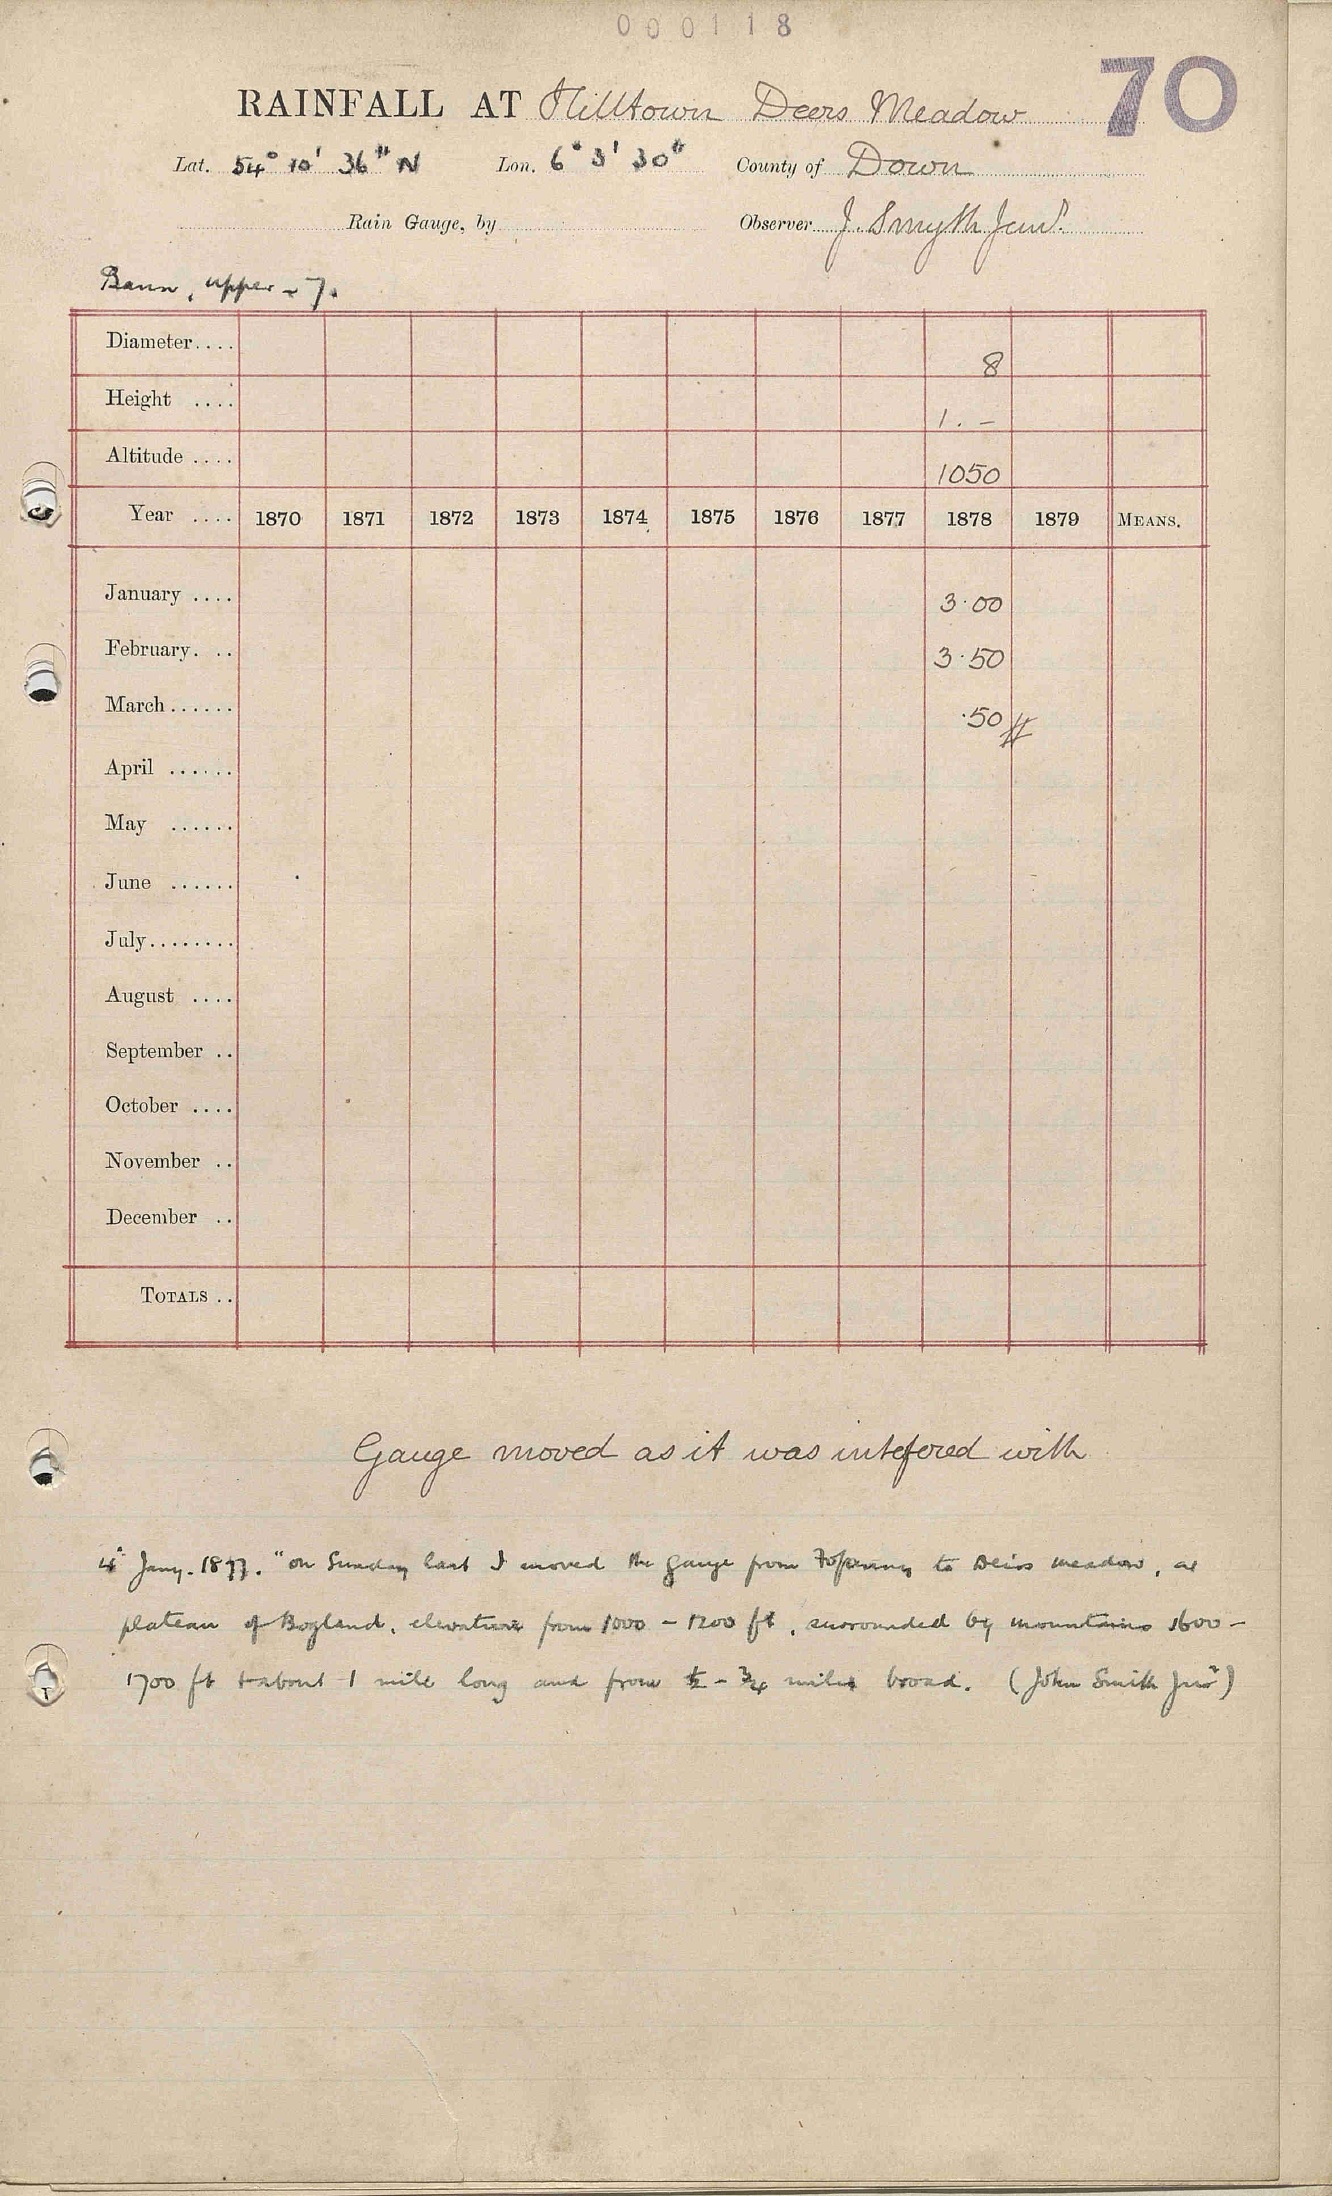 000118
70
RAINFALL AT Hilltown Deers Meadow
Lat. 54° 10' 36" N Lon. 6° 3' 30" County of Down
Rain Gauge, by Observer J. Smyth Junr.
Bann, upper - 7.
Diameter.... 8
Height .... 1. -
Altitude .... 1050
Year .... 1870 1871 1872 1873 1874 1875 1876 1877 1878 1879 MEANS.
January .... 3.00
February. .. 3.50
March...... .50 #
April ......
May ......
June ......
July........
August ....
September ..
October ....
November ..
December ..
TOTALS ..
Gauge moved as it was intefered with
Jany. 1877. "on Sunday last I moved the gauge from to Deirs meadow, a
plateau of Bogland, elevation from 1000 - 1200 ft, surrounded by mountains 1600 -
1700 ft about 1 mile long and from ½ - ¾ miles broad. (John Smith Junr)